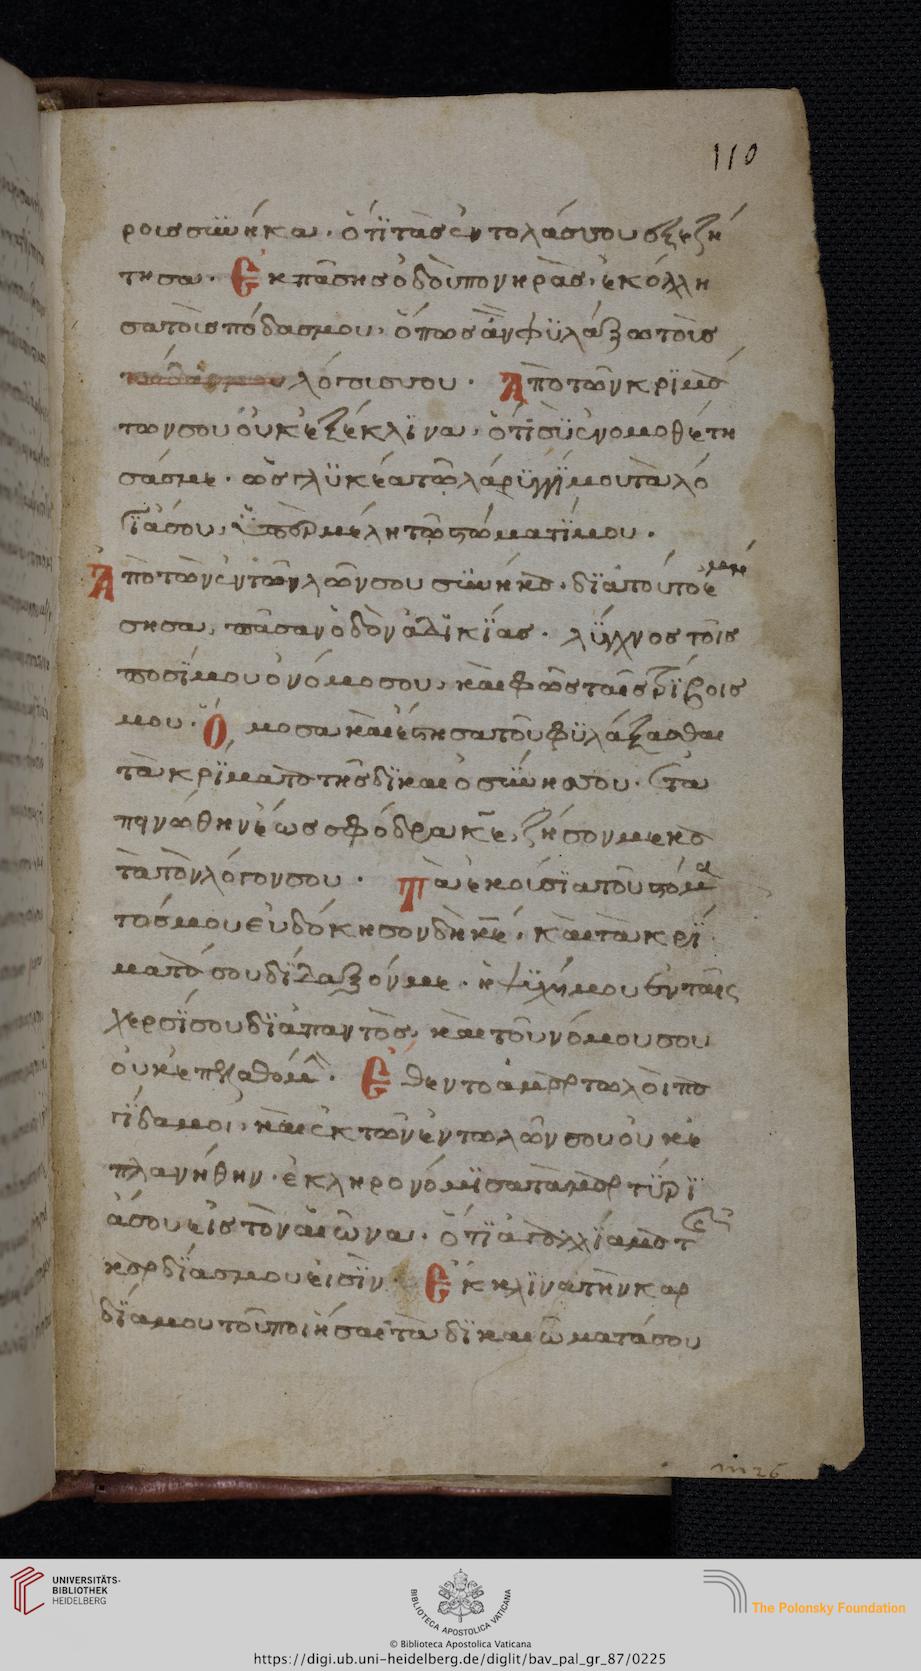 110
ροις συνήκα· ὅτι τὰς ἐντολάς σου ἐξεζή
τησα· Ἐκ πάσης ὁδοῦ πονηρᾶς· ἐκόλλη
σα τοῖς πόδας μου· ὅπως ἂν φυλάξω τοῖς
λόγοις σου· Ἀπο τῶν κριμά
των σου οὐκ ἐξέκλινα· ὅτι σὺ ἐνομοθέτη
σάς με· ὡς γλυκέα τῷ λάρυγγί μου τὰ λό
γιά σου, ὑπὲρ μέλη τῷ στόματί μου·
Ἀπο τῶν ἐντολῶν σου συνήκα· διὰ τοῦτο ἐμί
σησα, πάσαν ὁδὸν ἀδικίας· λύχνος τοῖς
ποσί μου ὁ νόμος σου, καὶ φῶς ταῖς τρίβοις
μου· Ὄμοσα καὶ ἔστησα τοῦ φυλάξασθαι
τὰ κρίματα τῆς δικαιοσύνης σου· ἐτα
πινώθην ἕως σφόδρα κε, ζήσόν με κα
τὰ τὸν λόγον σου· Τὰ ἑκούσια τοῦ στόμα
τός μου εὐδόκησον δὴ κε, καὶ τὰ κρί
ματά σου δίδαξόν με· ἡ ψυχή μου ἐν ταῖς
χερσί σου διὰ παντός, καὶ τοῦ νόμου σου
οὐκ ἐπελαθόμην· Ἔθεντο ἁμαρτωλοὶ πα
γίδα μοι, καὶ ἐκ τῶν ἐντωλῶν σου οὐκ ἐ
πλανήθην· ἐκληρονόμισα τὰ μαρτύρι
ά σου εἰς τὸν αἰῶνα· ὅτι ἀγαλλίαμα τῆς
καρδίας μου εἰσίν· Ἔκκλινα τὴν καρ
δίαν μου τοῦ ποιήσαι τὰ δικαιώματά σου
UNIVERSITÄTS-
BIBLIOTHEK
HEIDELBERG
BIBLIOTECA APOSTOLICA VATICANA
The Polonsky Foundation
© Biblioteca Apostolica Vaticana
https://digi.ub.uni-heidelberg.de/diglit/bav_pal_gr_87/0225